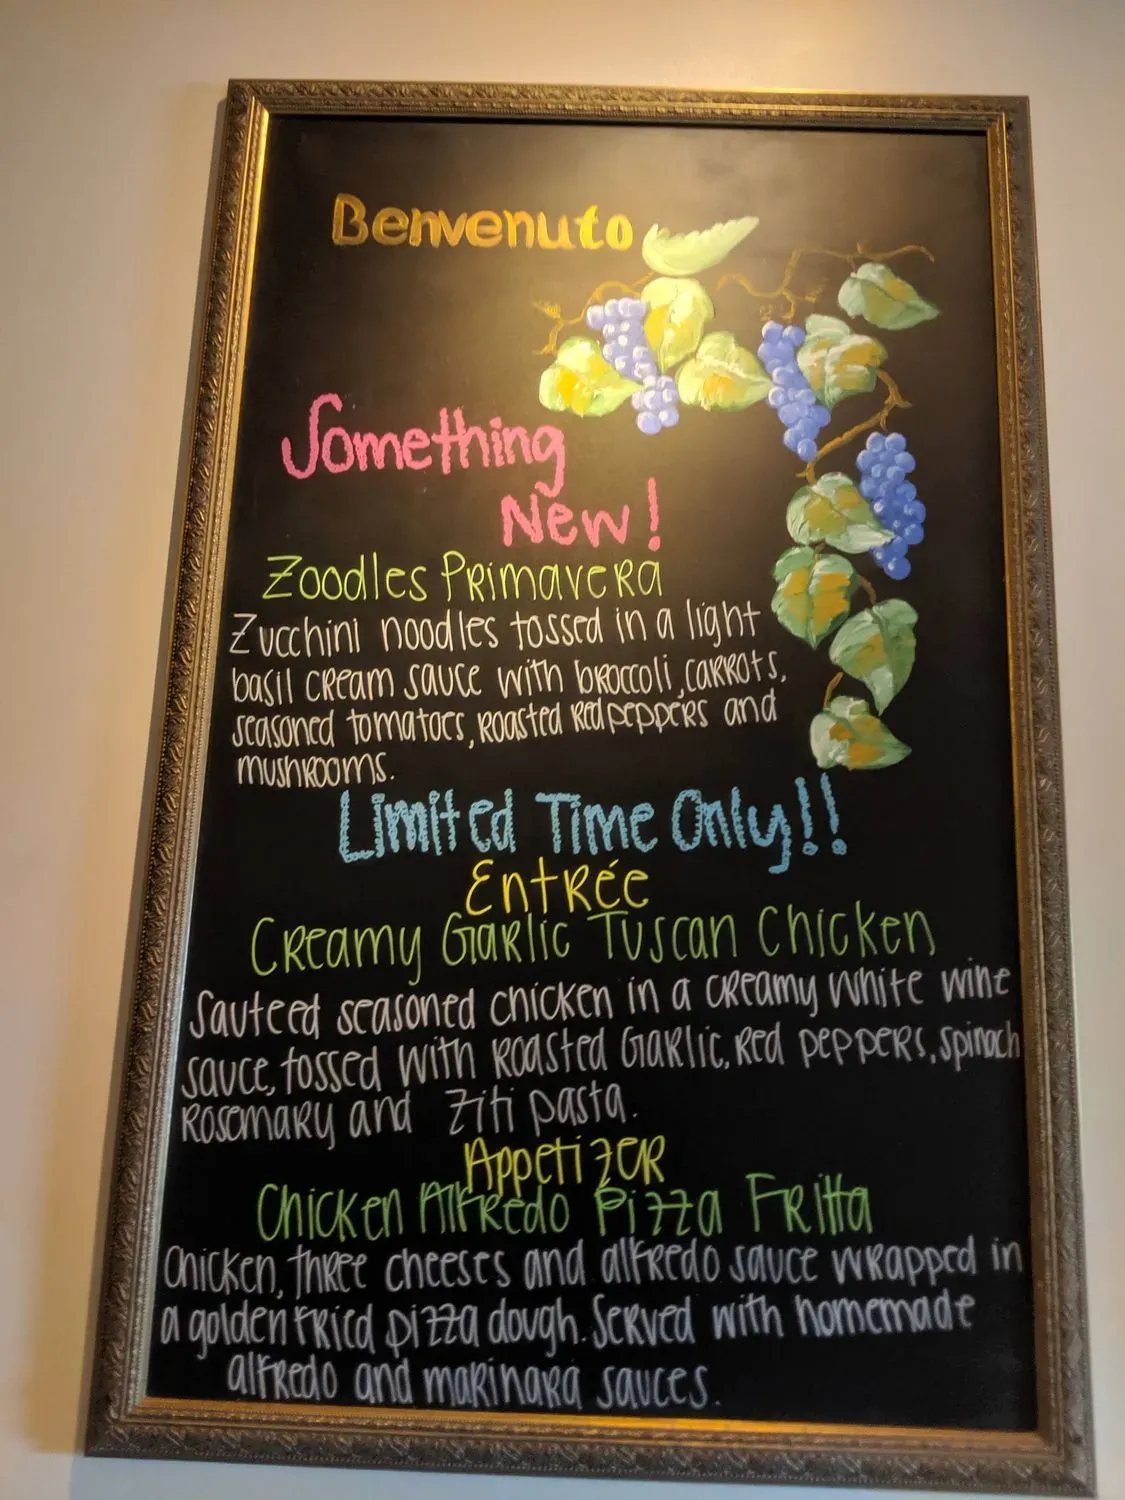 Benvenuto
Something
New!
Zoodles Primavera
Zucchini noodles tossed in a light
basil cream sauce with broccoli, carrots,
seasoned tomatoes, roasted red peppers and
mushrooms.
Limited Time Only!!
Entrée
Creamy Garlic Tuscan Chicken
Sauteed seasoned chicken in a creamy white wine
sauce, tossed with roasted Garlic, Red peppers, spinach
Rosemary and Ziti pasta.
Appetizer
Chicken Alfredo Pizza Fritta
Chicken, three cheeses and alfredo sauce wrapped in
a golden fried pizza dough. Served with homemade
alfredo and marinara sauces.